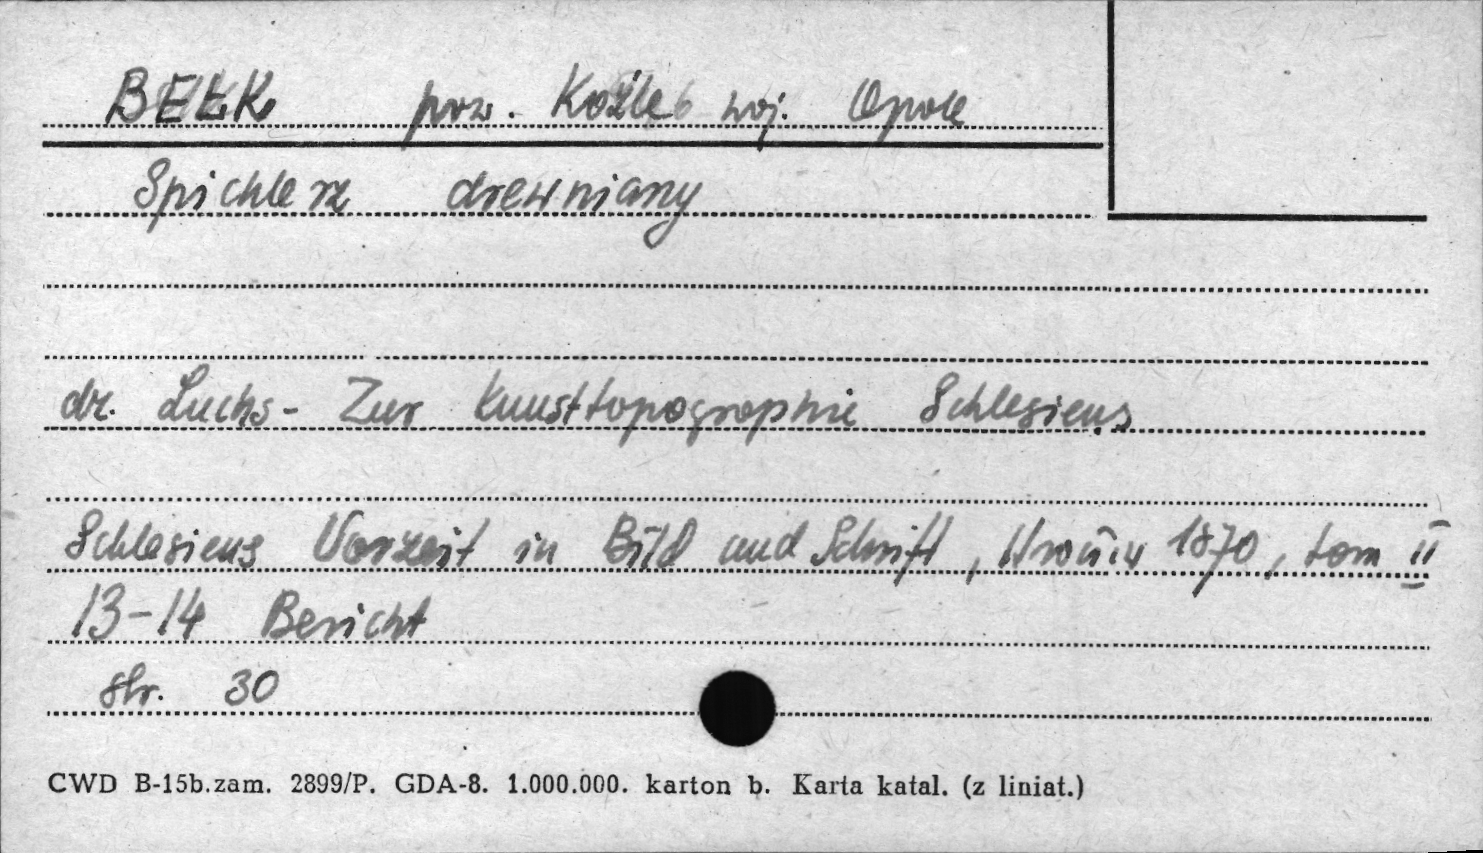 BEŁK pow. Koźle woj. Opole
Spichlerz drewniany
dr. Luchs - Zur Kunsttopographie Schlesiens
Schlesiens Vorzeit in Bild und Schrift, Wrocław 1870, tom II
13-14 Bericht
str. 30
CWD B-15b.zam. 2899/P. GDA-8. 1.000.000. karton b. Karta katal. (z liniat.)